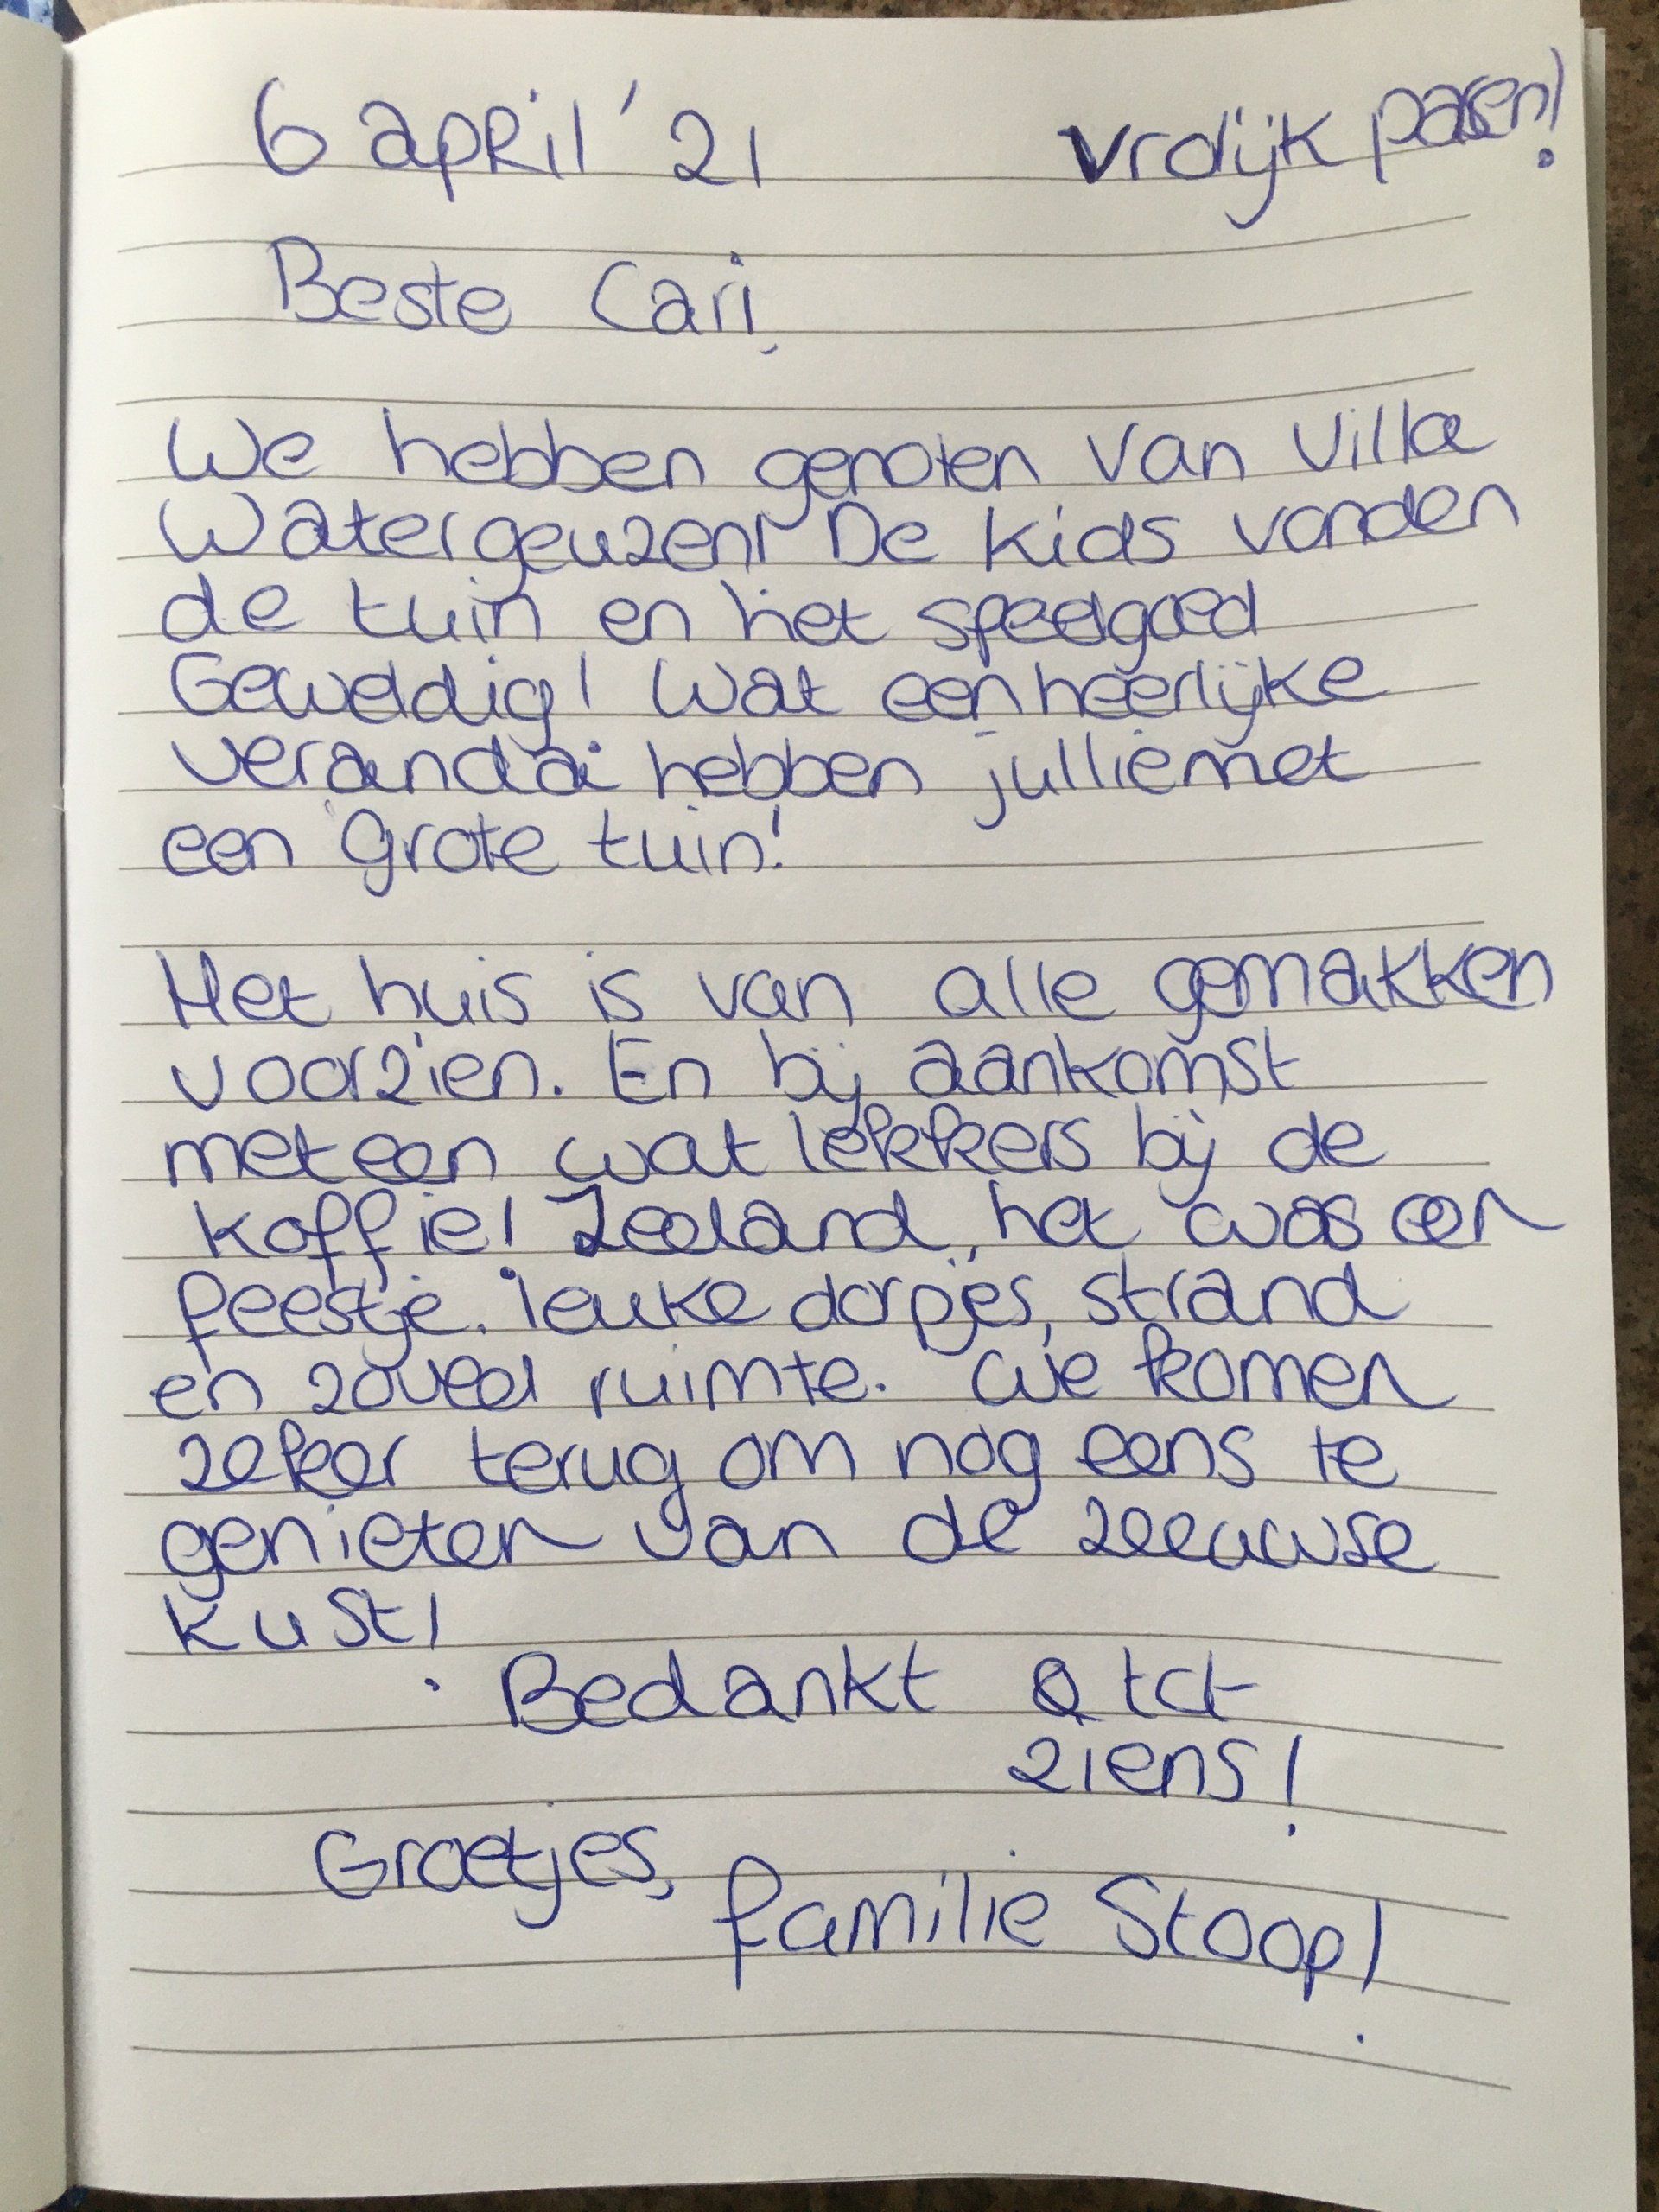 6 april '21 vrolijk pasen!
Beste Cari,
We hebben genoten van Villa
Watergeuzen! De kids vonden
de tuin en het speelgoed
Geweldig! Wat een heerlijke
veranda hebben jullie met
een grote tuin!
Het huis is van alle gemakken
voorzien. En bij aankomst
meteen wat lekkers bij de
koffie! Zeeland, het was een
feestje. leuke dorpjes, strand
en zoveel ruimte. We komen
zeker terug om nog eens te
genieten van de zeeuwse
kust!
Bedankt & tot
ziens!
Groetjes,
familie Stoop!